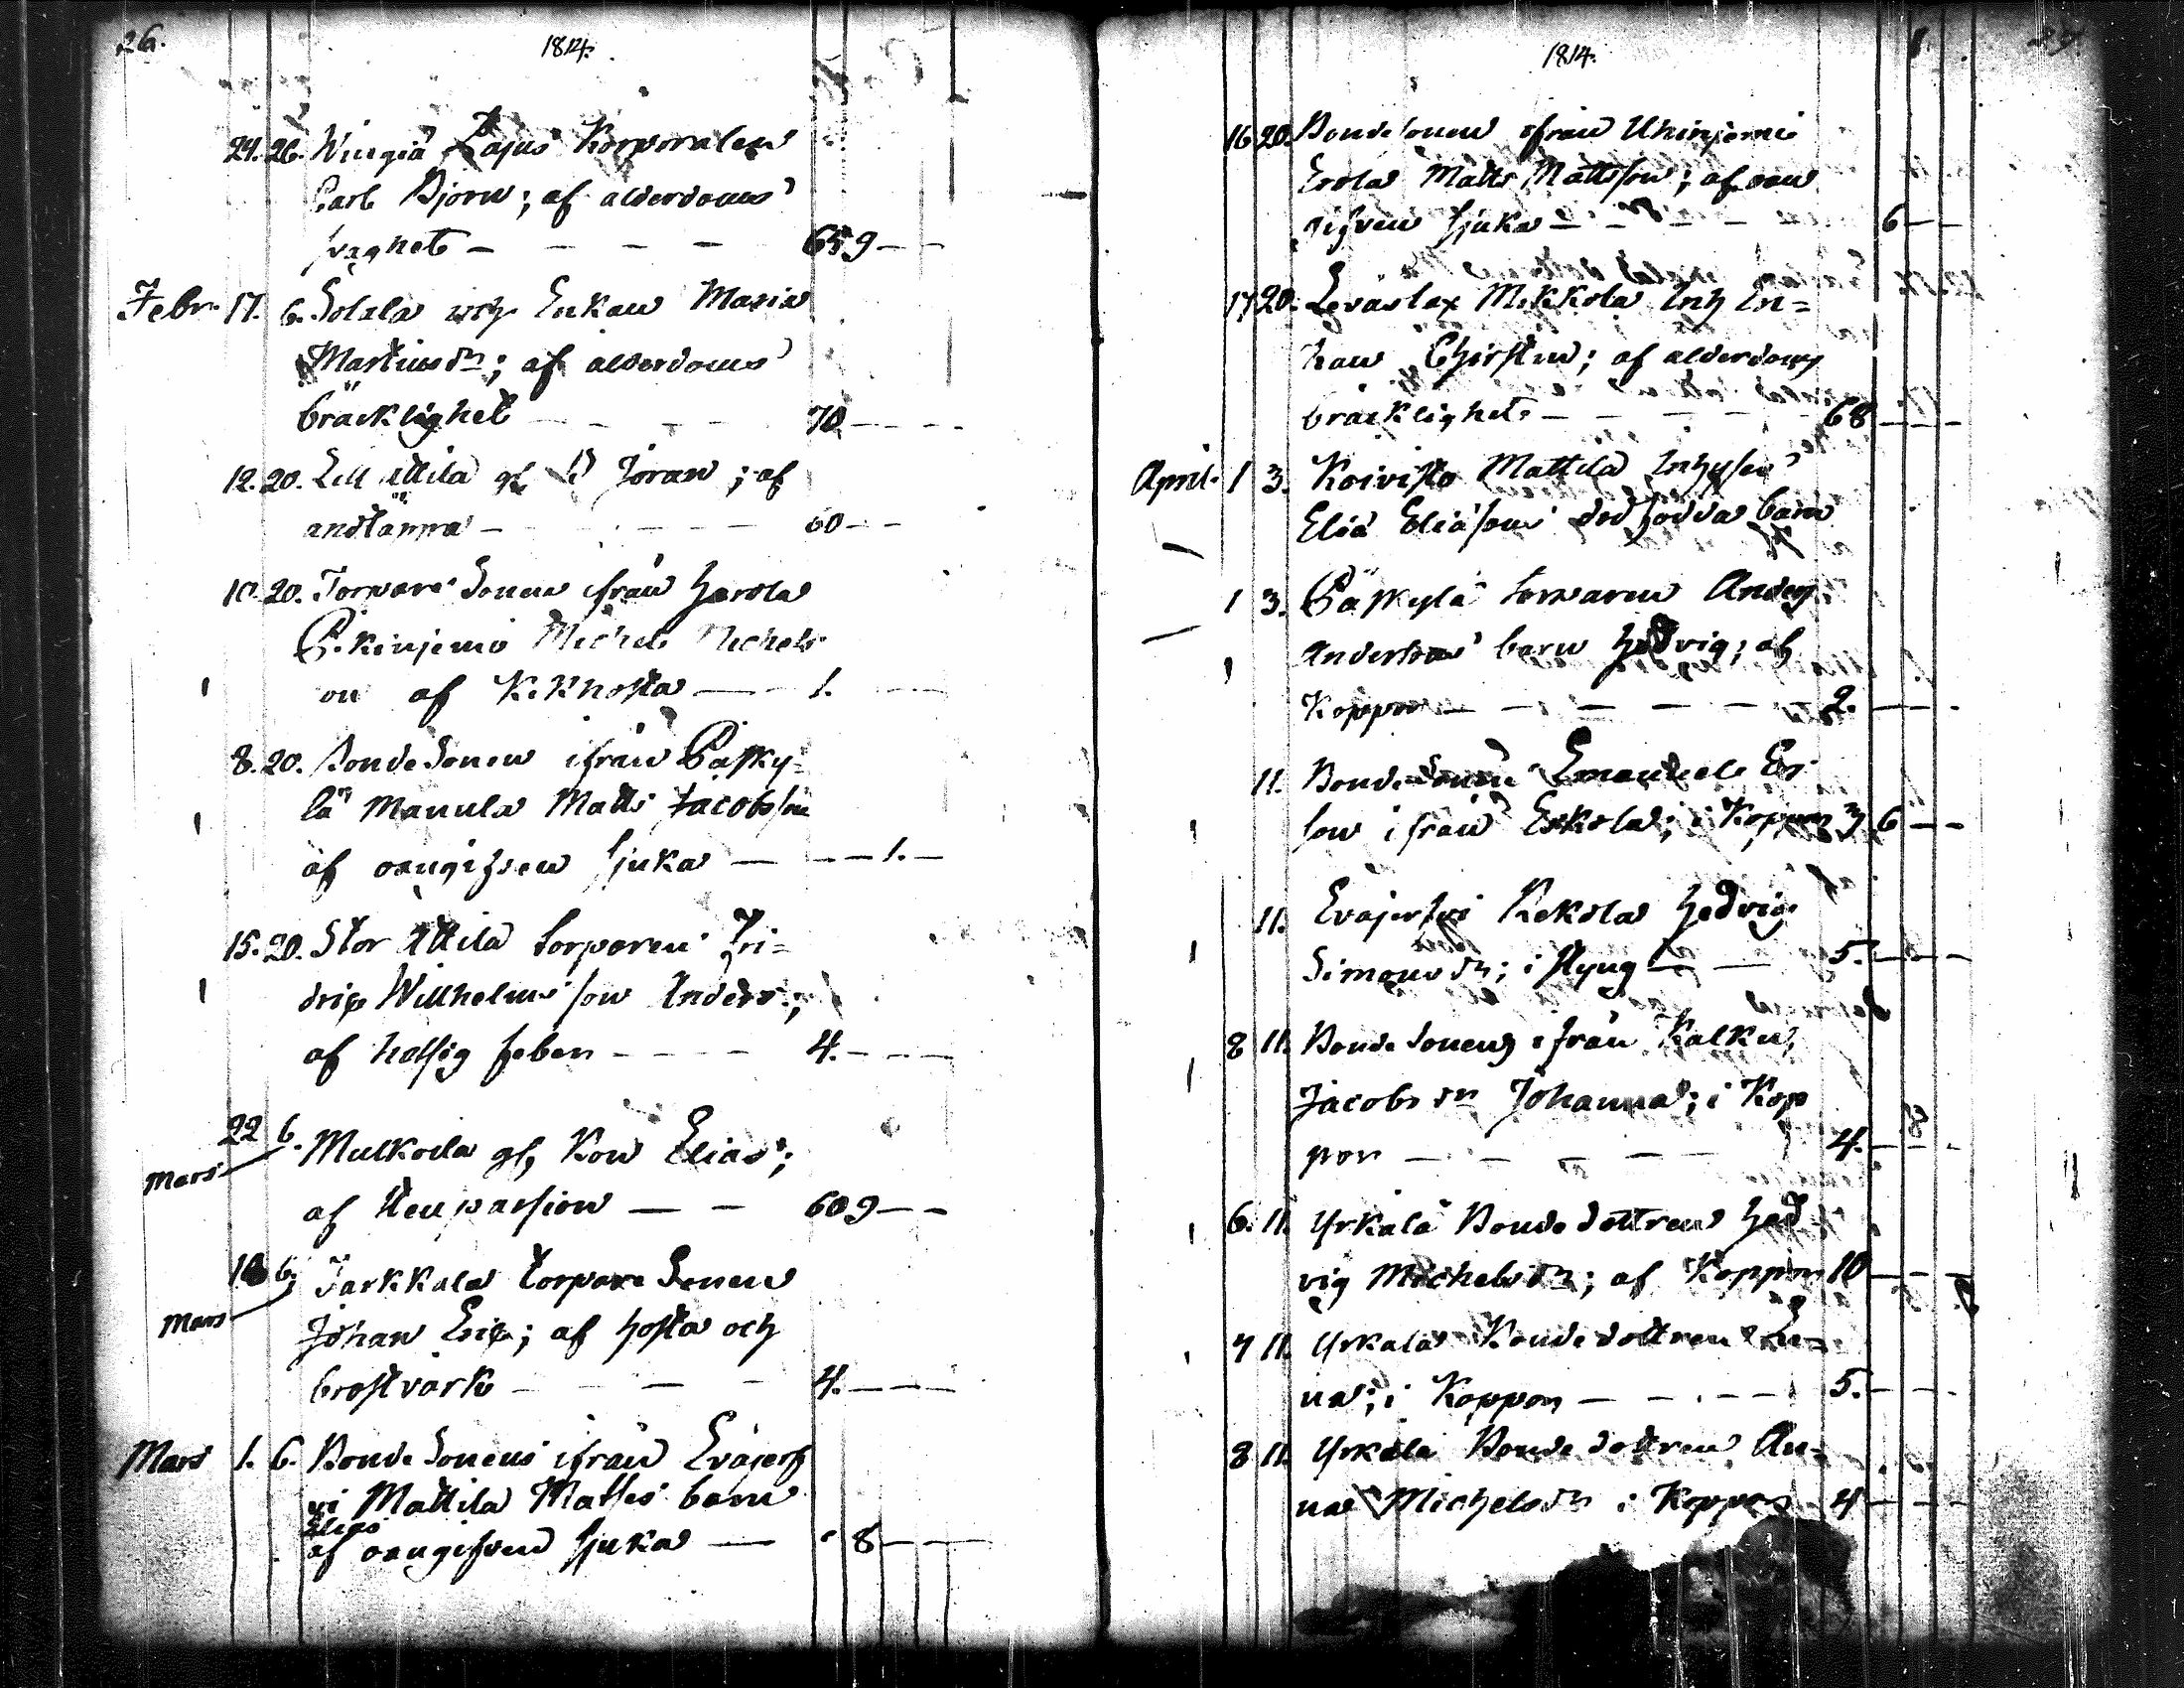 26.
1814.
24. 26. Wirgiä Lajus Korporalen
Carl Björn; af alderdoms
svaghet — — — — 65 9 — —
Febr. 17. 6. Solala Enkan Maria
Martinsdr; af alderdoms
bräcklighet — — — 70 — — —
12. 20. Lill Uttila gl Jöran; af
andtäppa — — — — 60 — —
10. 20. Torpare Sonen ifrån Harola
Pikinjemi Michel Michels
on af Kikhosta — — 1. — —
8. 20. Bonde Sonen ifrån Päsky-
lä Manula Matts Jacobsson
af oangifven sjuka — — — 1. —
15. 20. Stor Uttila torparen Fri-
dric Willhelms son Anders;
af hetsig feber — — — 4. — — —
22 6. Mulkoila gl Kon Elias;
Mars
af Stenpassion — — 60 9 — —
10 6. Jarkkala torpare Sonen
Mars
Johan Eric; af hosta och
bröstvärk — — — — 4. — — —
Mars 1. 6. Bonde Sonens ifrån Eväjerf
vi Mattila Mattes barn
Elias
af oangifven sjuka — 8 — —
1814.
16 20. Bonde sonen ifrån Uhinjemi
Erola Matts Mattsson; af oan
gifven sjuka — — — — 6 — —
17 20. Leväslax Mikkola Inh En-
kan Christin; af alderdoms
bräcklighet — — — — 68 — — —
April. 1 3. Koivisto Mattila Inhyses
Eliä Eliäsons dödfödda barn
1 3. Päskylä torparen Anders
Andersons barn Hedvig; af
Koppor — — — — — 2. — — —
11. Bonde Sonen Emanuel
son ifrån Eskola; i Koppor 3 6 — —
11. Eväjerfvi Kekola Hedvig
Simonsdr; i Styng — — 5. — — —
8 11. Bonde Sonens ifrån Kalku
Jacobsdr Johanna; i Kop
por — — — — — 4. — — —
6. 11. Yrkälä Bonde dottren Hed
vig Michelsdr; af Koppor 10 — — —
7 11. Yrkälä Bonde dottren
na; i Koppor — — — — 5. — — —
8 11. Yrkälä Bonde dottren An-
na Michelsdr i Koppor 4 — — —